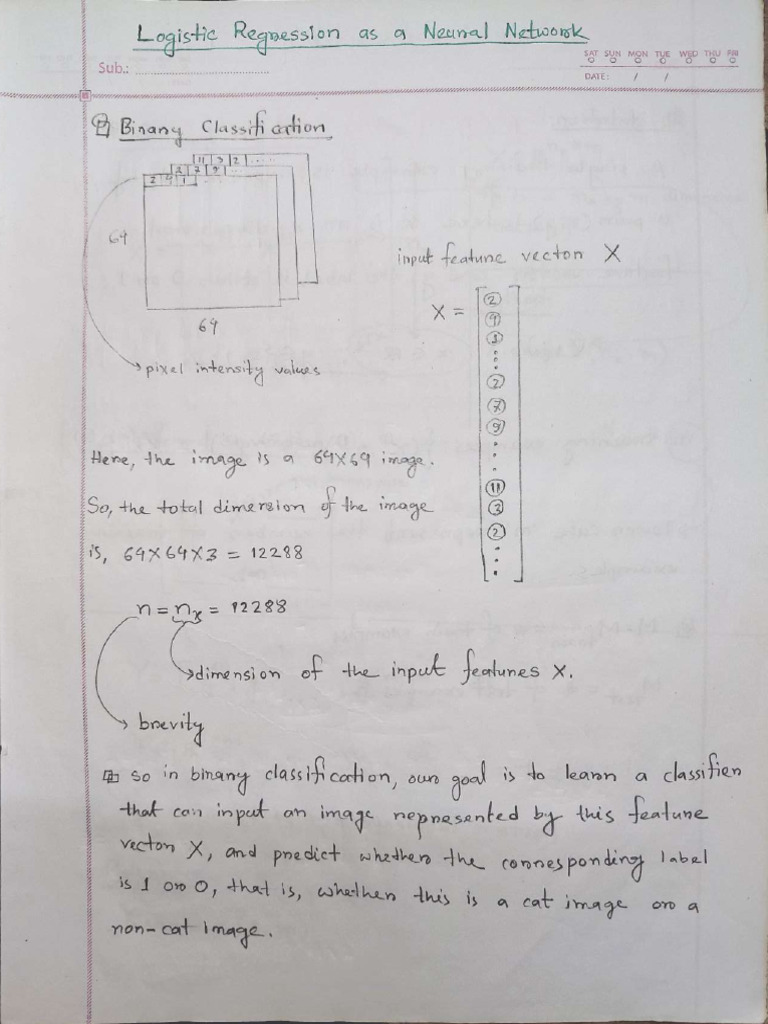 Logistic Regression as a Neural Network
SAT SUN MON TUE WED THU FRI
Sub.:
DATE: / /
Binary Classification
11 3 2 ....
2 7 9 ...
2 9 1 ...
64
64
pixel intensity values
input feature vector X
X =
2
9
3
2
7
9
11
3
2
Here, the image is a 64x64 image.
So, the total dimension of the image
is, 64x64x3 = 12288
n = nx = 12288
dimension of the input features X.
brevity
So in binary classification, our goal is to learn a classifier
that can input an image represented by this feature
vector X, and predict whether the corresponding label
is 1 or 0, that is, whether this is a cat image or a
non-cat image.